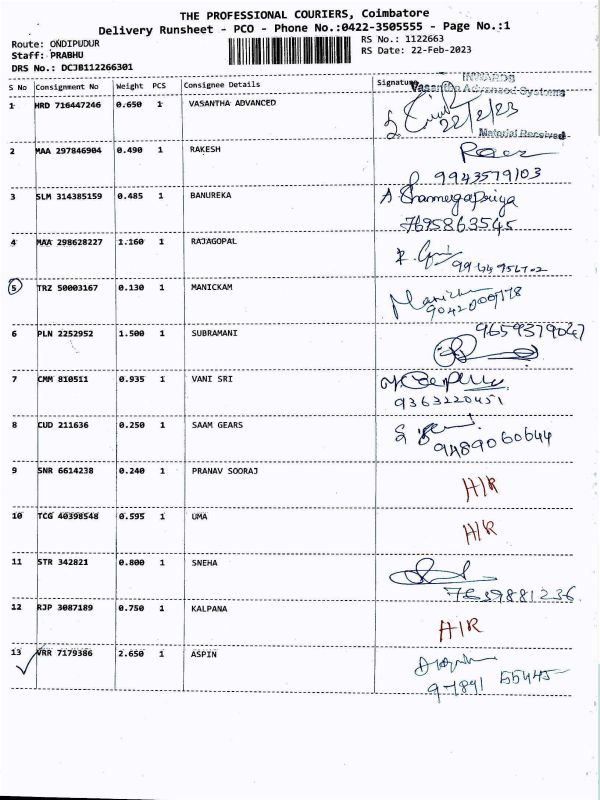 THE PROFESSIONAL COURIERS, Coimbatore
Delivery Runsheet - PCO - Phone No.:0422-3505555 - Page No.:1
Route: ONDIPUDUR
RS No.: 1122663
Staff: PRABHU
RS Date: 22-Feb-2023
DRS No.: DCJB112266301
S No Consignment No Weight PCS Consignee Details Signature
INWARDS
Vasantha Advanced Systems
1 HRD 716447246 0.650 1 VASANTHA ADVANCED
22/2/23
Material Received
2 MAA 297846904 0.490 1 RAKESH
9943579103
3 SLM 314385159 0.485 1 BANUREKA A Shamugapriya
7695863545
4 MAA 298628227 1.160 1 RAJAGOPAL
5 TRZ 50003167 0.130 1 MANICKAM
6 PLN 2252952 1.500 1 SUBRAMANI 9659379047
7 CMM 810511 0.935 1 VANI SRI
9363220451
8 CUD 211636 0.250 1 SAAM GEARS
9489060644
9 SNR 6614238 0.240 1 PRANAV SOORAJ H/R
10 TCG 40398548 0.595 1 UMA H/R
11 STR 342821 0.800 1 SNEHA
7639881236
12 RJP 3087189 0.750 1 KALPANA H/R
13 VRR 7179386 2.650 1 ASPIN
97891 55445